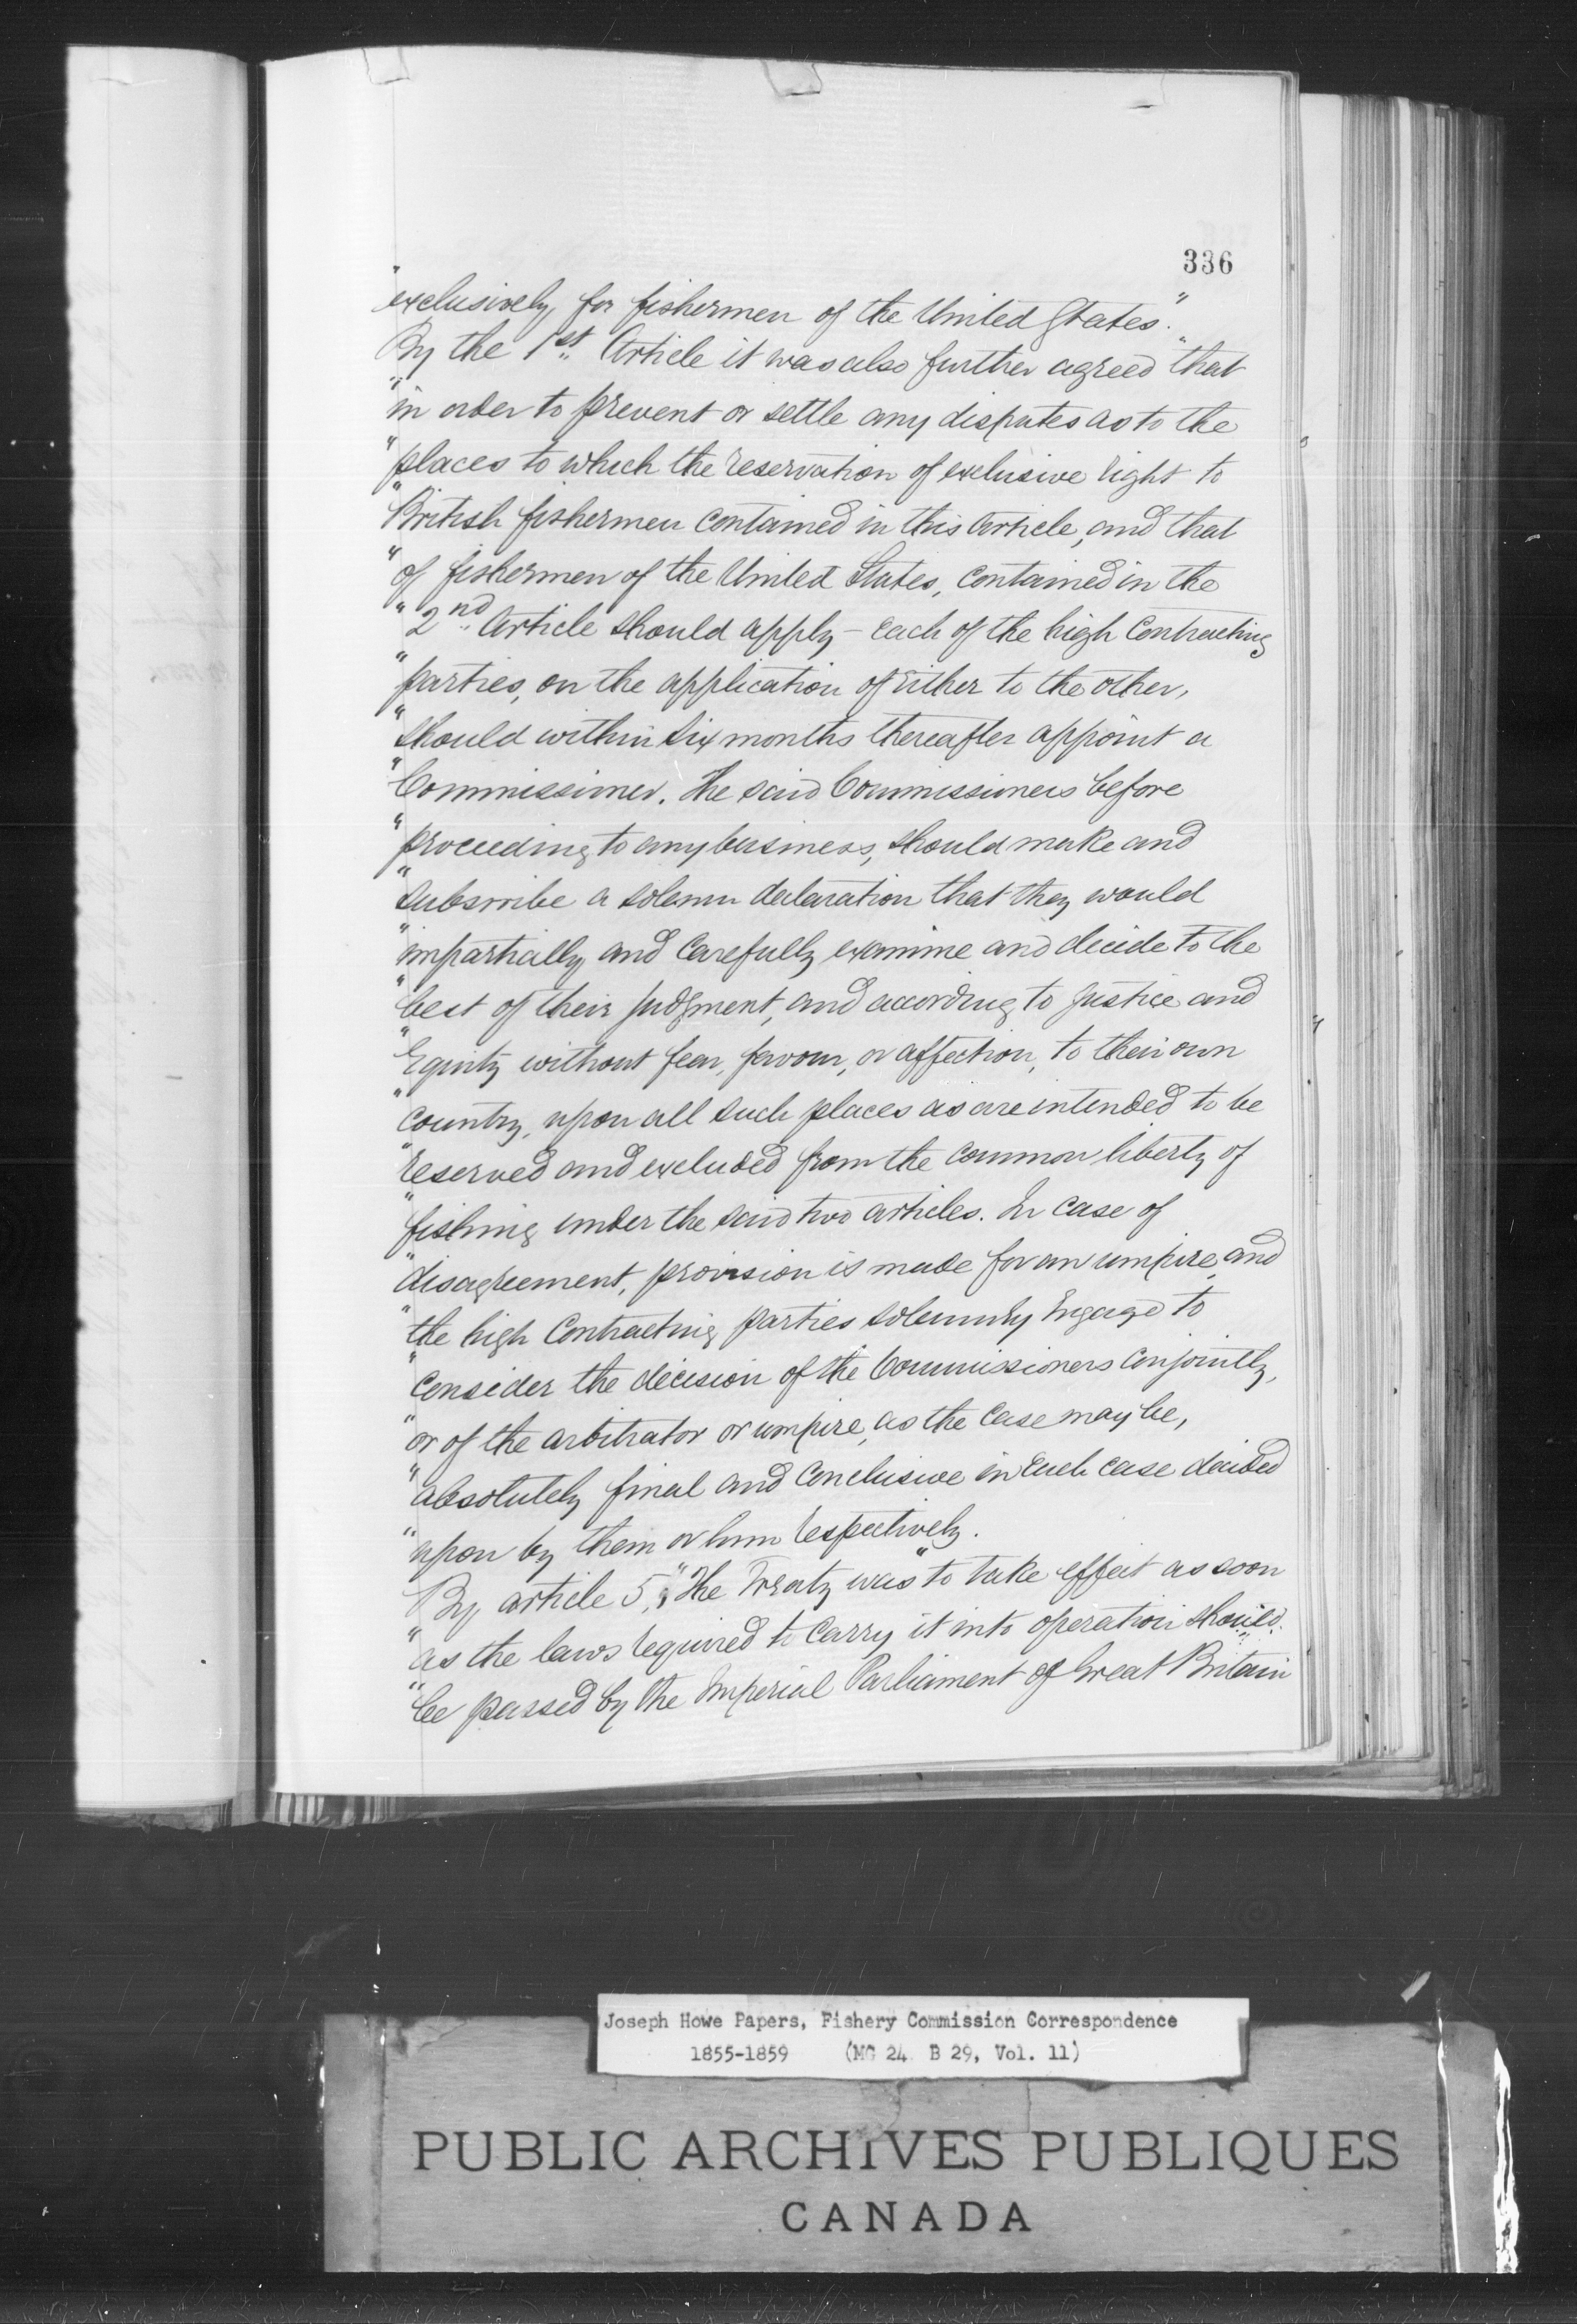 336
"exclusively for fishermen of the United States."
By the 1st Article it was also further agreed "that
"in order to prevent or settle any disputes as to the
"places to which the reservation of exclusive right to
"British fishermen contained in this Article, and that
"of fishermen of the United States, contained in the
"2nd Article should apply – each of the high Contracting
"parties, on the application of either to the other,
"should within six months thereafter appoint a
"Commissioner. The said Commissioners before
"proceeding to any business, should make and
"subscribe a solemn declaration that they would
"impartially and carefully examine and decide to the
"best of their judgment, and according to justice and
"Equity without fear, favour, or affection, to their own
"country, upon all such places as are intended to be
"reserved and excluded from the common liberty of
"fishing under the said two articles. In case of
"disagreement, provision is made for an umpire, and
"the high Contracting parties solemnly engage to
"consider the decision of the Commissioners conjointly,
"or of the arbitrator or umpire, as the case may be,
"absolutely final and conclusive in each case decided
"upon by them or him respectively.
By article 5, "The Treaty was "to take effect as soon
"as the laws required to carry it into operation should
"be passed by the Imperial Parliament of Great Britain
Joseph Howe Papers, Fishery Commission Correspondence
1855-1859 (MG 24 B 29, Vol. 11)
PUBLIC ARCHIVES PUBLIQUES
CANADA